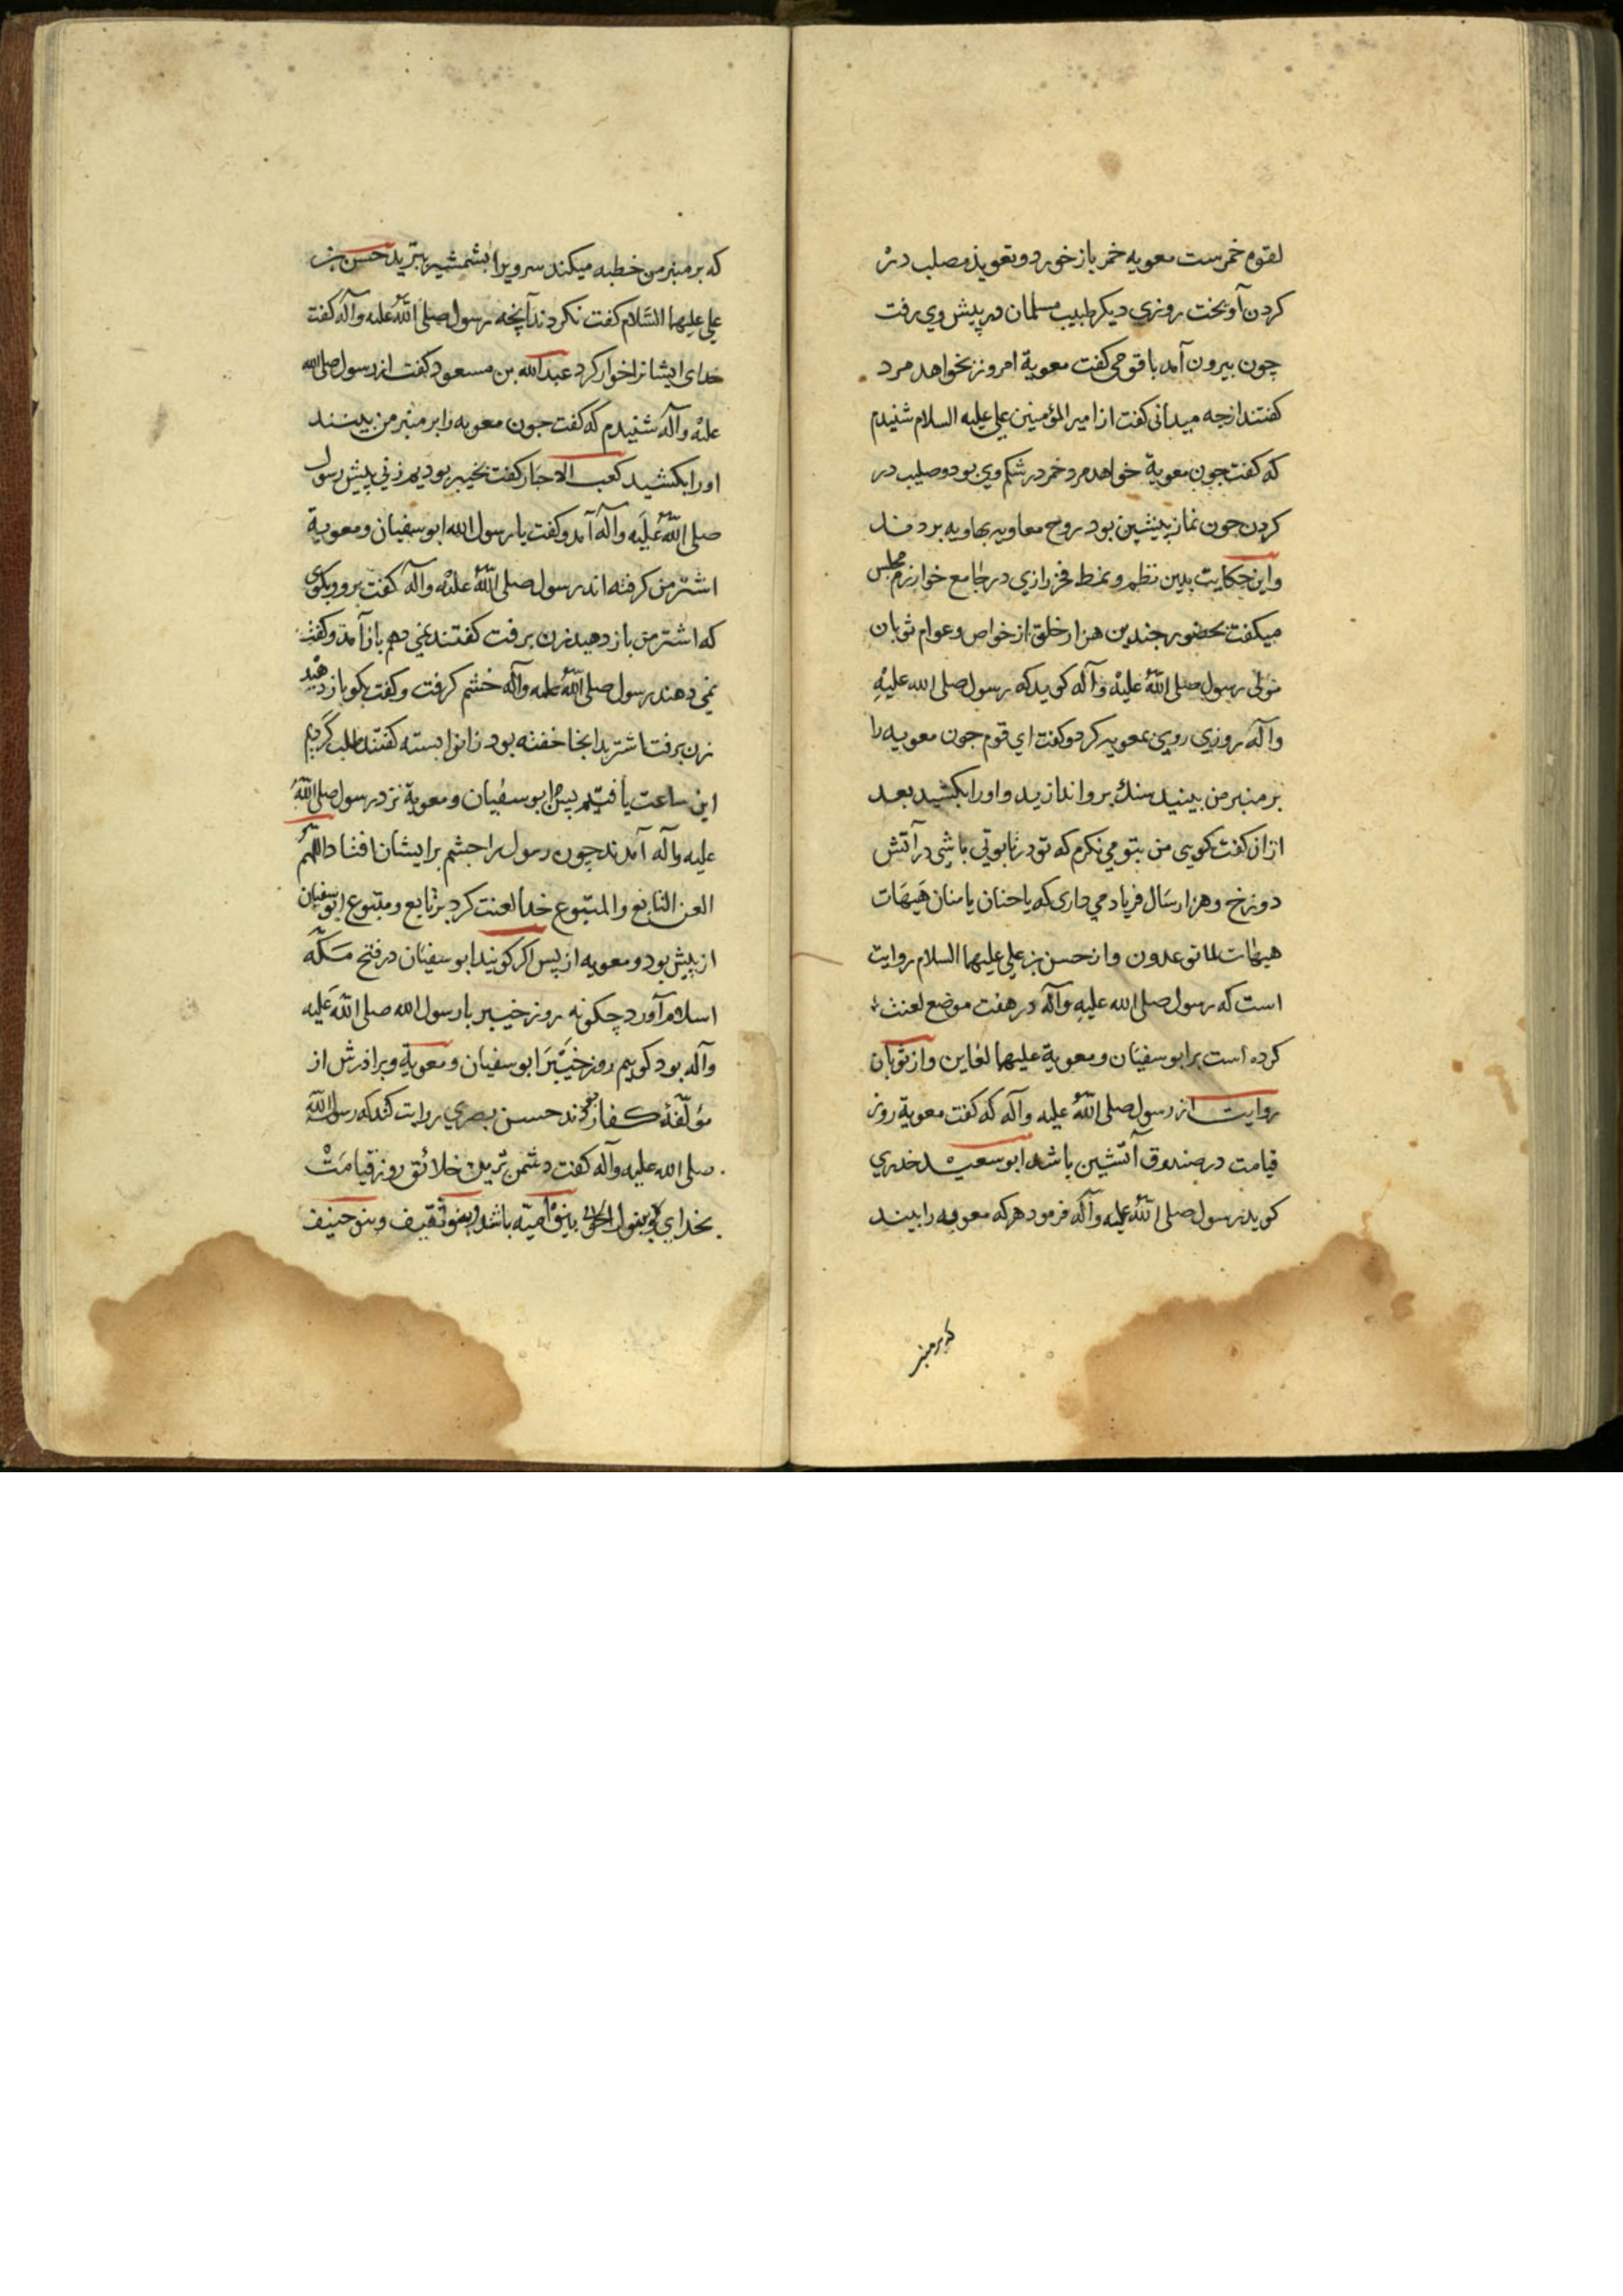 لقوم خمرست معویه خمر باز خورد و تعویذ مصلب در
کردن آویخت روزی دیکر طبیب مسلمان در پیش وی رفت
چون بیرون آمد با قومی کفت معویة امروز بخواهد مرد
کفتند از جه میدانی کفت از امیر المؤمنین علی علیه السلام شنیدم
که کفت جون معویة خواهد مرد خمر در شکم وی بود و صلیب در
کردن جون نماز پیشین بود روح معاویه بهاویه بردند
و این حکایت بدین نظم و نمط فخر رازی در جامع خوارزم مجلس
میکفت بحضور جندین هزار خلق از خواص و عوام ثوبان
مولی رسول صلی الله علیه وآله کوید که رسول صلی الله علیه
وآله روزی روی بمعویه کرد و کفت ای قوم جون معویه را
بر منبر من بینید سنك برو اندازید و اورا بکشید بعد
از ان کفت کویی من بتو می نکرم که تو در تابوتی باشی در آتش
دوزخ و هزار سال فریاد می داری که یا حنان یا منان هیهات
هیهات لما توعدون و از حسن بن علی علیهما السلام روایت
است که رسول صلی الله علیه وآله در هفت موضع لعنت
کرده است بر ابو سفیان و معویة علیهما لعاین و از ثوبان
روایت از رسول صلی الله علیه وآله که کفت معویة روز
قیامت در صندوق آتشین باشد ابو سعید خدری
کوید رسول صلی الله علیه وآله فرمود هر که معویه را بیند
که بر منبر
که بر منبر من خطبه میکند سر ویرا بشمشیر ببرید حسن بن
علی علیهما السلام کفت نکردند آنچه رسول صلی الله علیه وآله کفت
خدای ایشانرا خوار کرد عبد الله بن مسعود کفت از رسول صلی الله
علیه وآله شنیدم که کفت جون معویه را بر منبر من بینند
اورا بکشید کعب الاحبار کفت بخیبر بودیم زنی پیش رسول
صلی الله علیه وآله آمد و کفت یا رسول الله ابو سفیان و معویة
اشتر من کرفته اند رسول صلی الله علیه وآله کفت برو و بکوی
که اشتر من باز دهید زن برفت کفتند نمی دهم باز آمد و کفت
نمی دهند رسول صلی الله علیه وآله خشم کرفت و کفت بکو باز دهید
زن برفت اشتر بدانجا خفته بود زانوا بسته کفتند طلب کردیم
این ساعت یافتیم پس ابو سفیان و معویة نزد رسول صلی الله
علیه وآله آمدند چون رسول را جشم بر ایشان افتاد اللهم
العن التابع والمتبوع خدا لعنت کرد بر تابع و متبوع ابو سفیان
از پیش بود و معویه از پس اکر کویند ابو سفیان در فتح مکه
اسلام آورد چکونه روز خیبر با رسول الله صلی الله علیه
وآله بود کوییم روز خیبر ابو سفیان و معویة و برادرش از
مؤلفهٔ کفار بودند حسن بصری روایت کند که رسول الله
صلی الله علیه وآله کفت دشمن ترین خلائق روز قیامت
بخدای بنو امیه باشد و بنو ثقیف و بنو حنیف